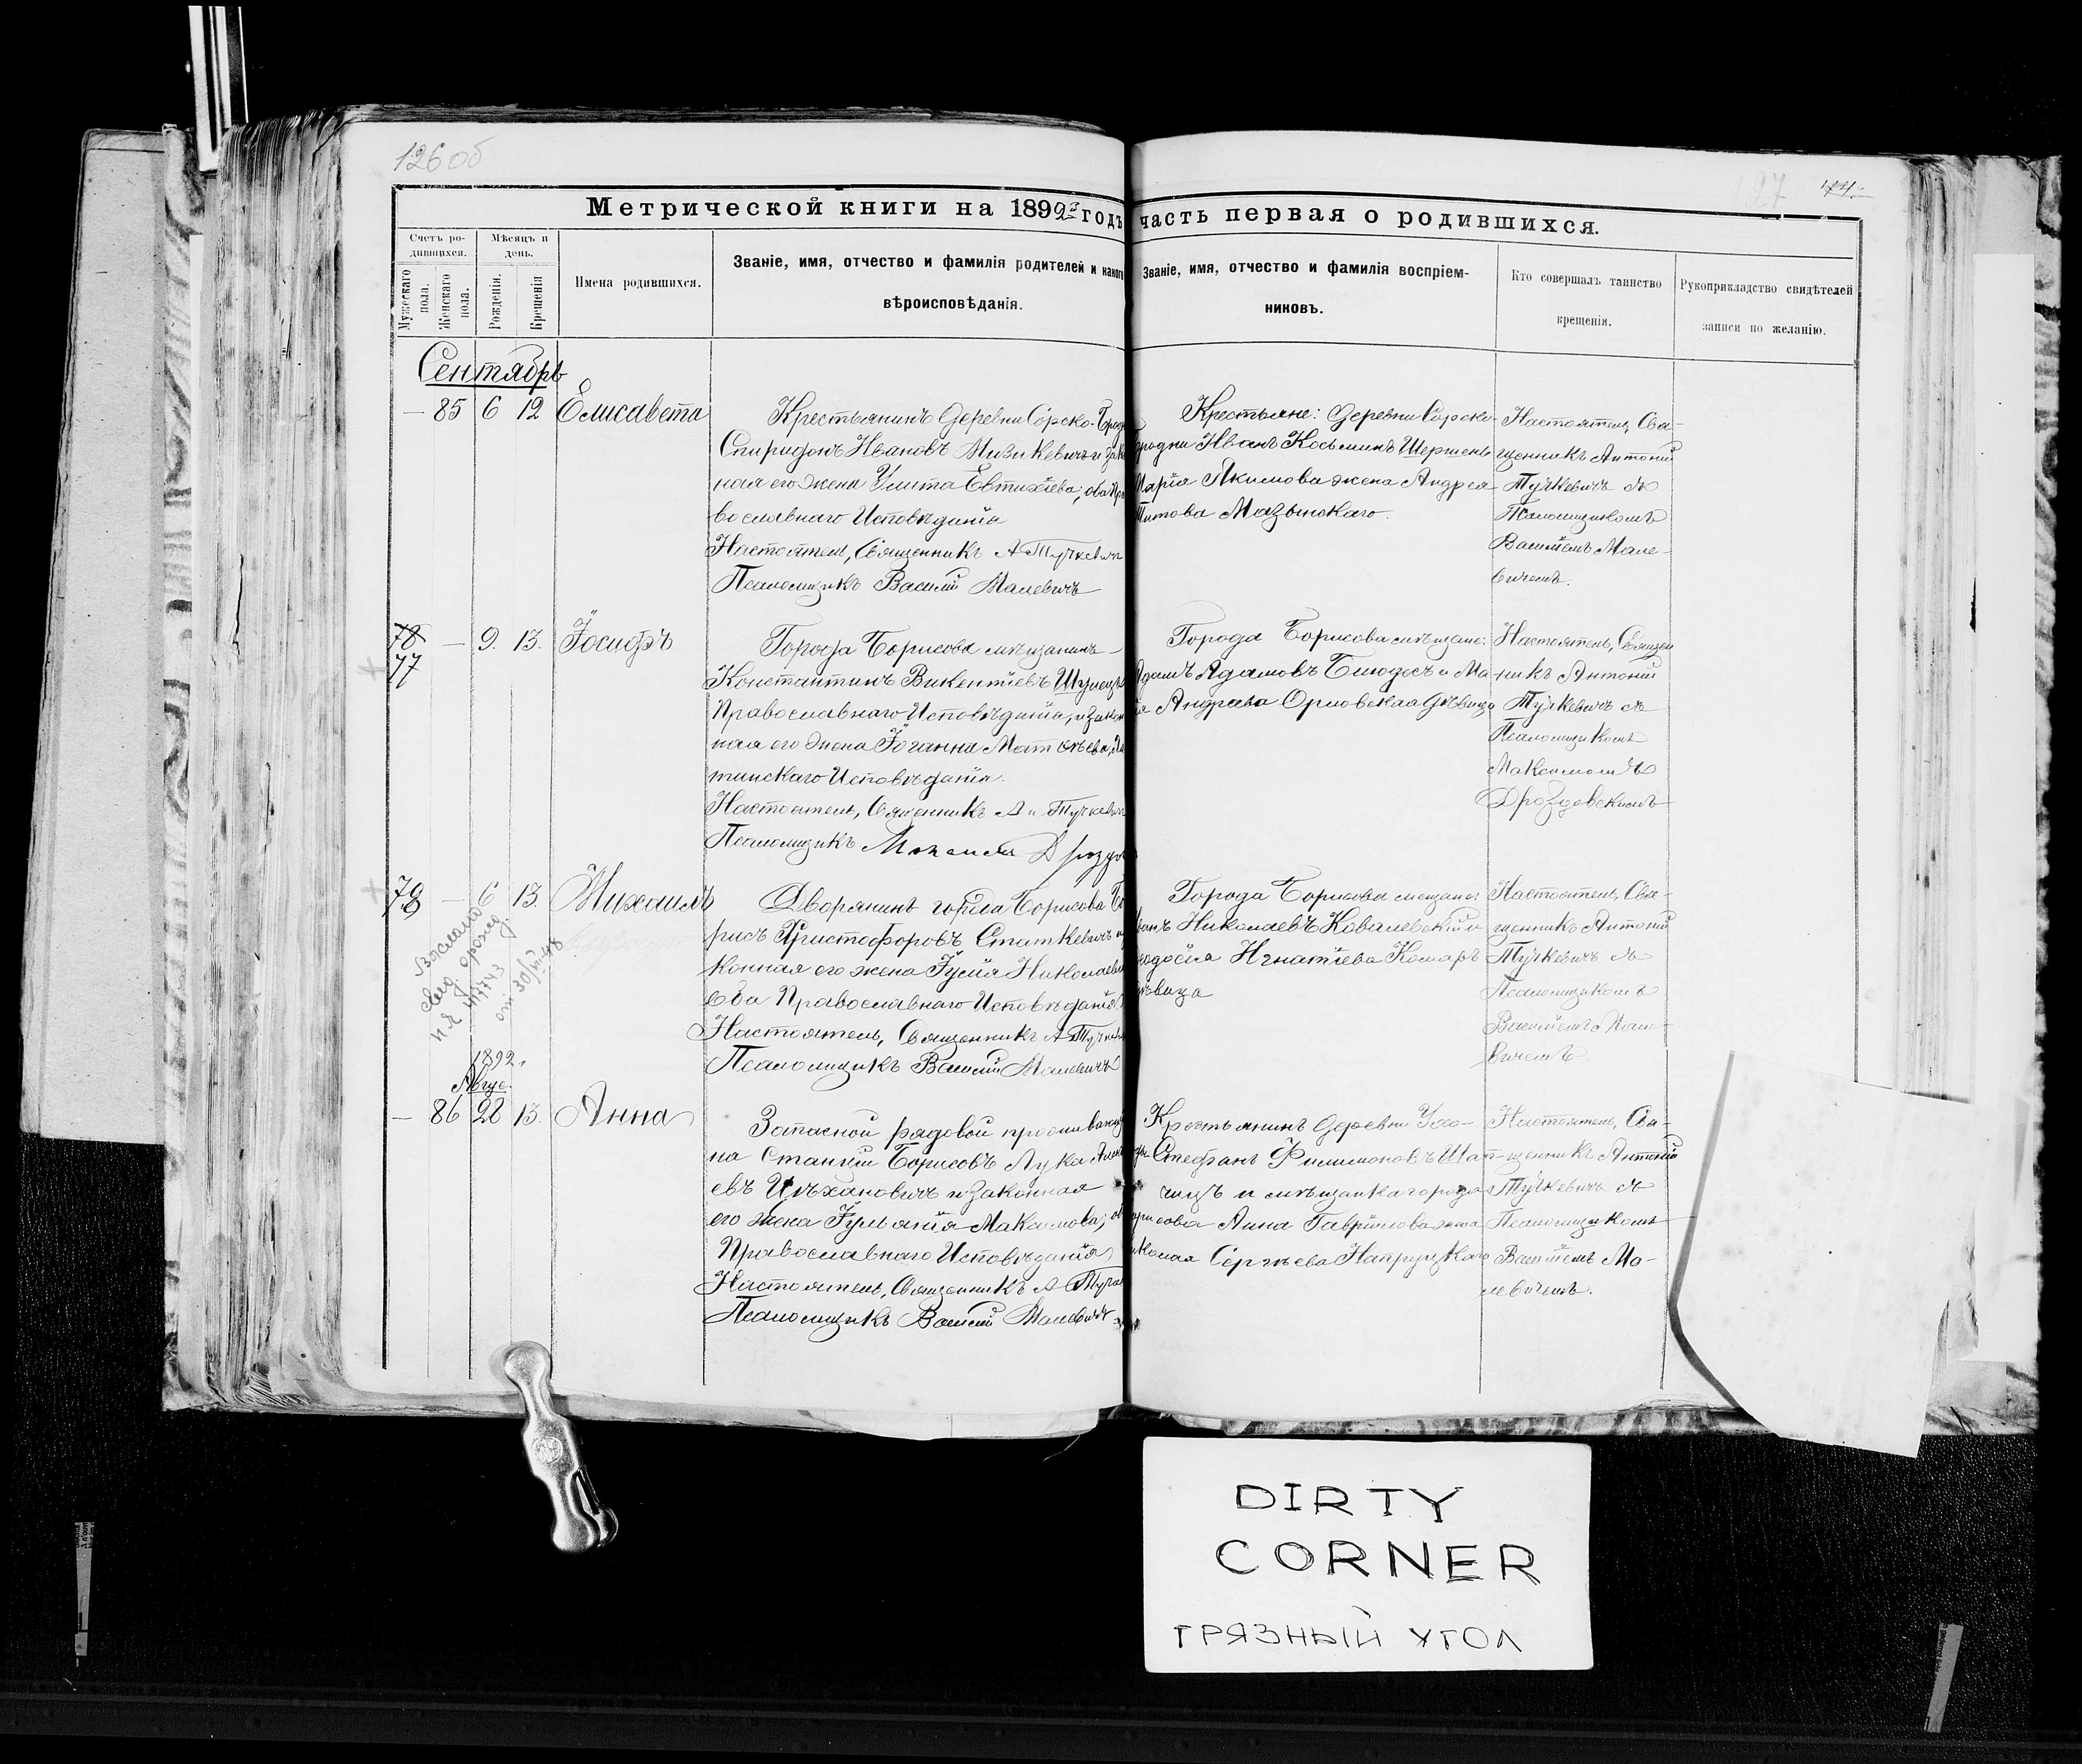 126 об
127
44
Метрической книги на 1892й годъ часть первая о родившихся.
Счетъ ро-
дившихся.
Мужескаго
пола.
Женскаго
пола.
Мѣсяцъ и
день.
Рожденія.
Крещенія
Имена родившихся.
Званіе, имя, отчество и фамилія родителей и какого
вѣроисповѣданія.
Званіе, имя, отчество и фамилія воспріем-
никовъ.
Кто совершалъ таинство
крещенія.
Рукоприкладство свидѣтелей
записи по желанію.
Сентябрь
— 85 6 12 Елисавета
Крестьянинъ деревни
Спиридонъ Ивановъ и
ная его жена Улита Евтихіева; оба Пра
вославнаго Исповѣданія
Настоятель, Священникъ А Тучкевич
Псаломщикъ Василій Малевичъ
Крестьяне: деревни
Иванъ Косьминъ Шершень
Марія Якимова жена Андрея
Титова Мазынскаго.
Настоятель, Свя-
щенникъ Антоній
Тучкевичъ съ
Псаломщикомъ
Василіемъ Мале-
вичемъ.
78 — 9. 13. Іосифъ
77
Города Борисова мѣщанинъ
Константинъ Викентіевъ
Православнаго Исповѣданія, и закон
ная его жена Іоганна Матвѣева, Ла
тинскаго Исповѣданія.
Настоятель, Священникъ А Тучкевич
Псаломщикъ
Города Борисова мѣщане:
Адамъ Адамовъ и Ма
ія Андреева Орловская дѣвица
Настоятель, Священ
никъ Антоній
Тучкевичъ съ
Псаломщикомъ
Максимомъ
Дроздовскимъ
78 — 6 13. Михаилъ
Дворянинъ города Борисова Бо
рисъ Христофоровъ Статкевичъ и
конная его жена Іулія Николаев
оба Православнаго Исповѣданія
Настоятель, Священникъ А Тучкев
Псаломщикъ Василій Малевичъ
Города Борисова мещане:
ванъ Николаевъ Ковалевскій и
одосія Игнатіева Комаръ
ѣвица
Настоятель, Свя-
щенникъ Антоній
Тучкевичъ съ
Псаломщикомъ
Василіемъ Мале-
вичемъ
Выслано
свид. о рожд.
от 30/IV-48
1892.
Авгус.
— 86 28 13. Анна
Запасной рядовой проживающ
на Станціи Борисовъ Лука
евъ и законная
его жена Іуліанія Максимова; об
Православнаго Исповѣданія
Настоятель, Священникъ А Тучк
Псаломщикъ Василій Малевичъ.
Крестьянинъ деревни
Стефанъ Филимоновъ
и мѣщанка города
орисова Анна Гавріилова жена
иколая Сергѣева
Настоятель, Свя-
щенникъ Антоній
Тучкевичъ съ
Псаломщикомъ
Василіемъ Ма-
левичемъ.
DIRTY
CORNER
ГРЯЗНЫЙ УГОЛ